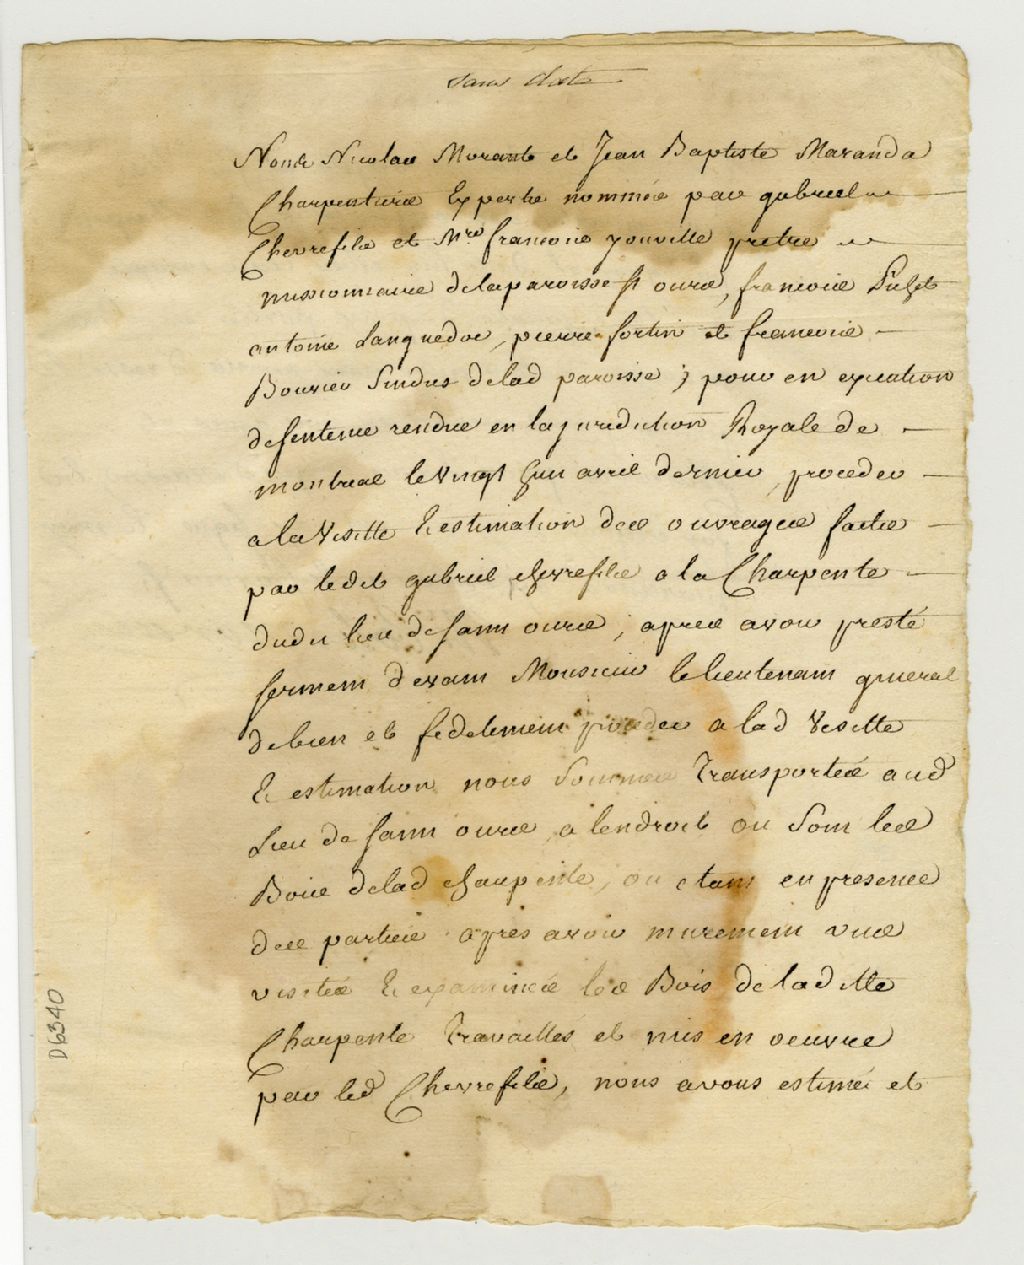 sans date
Nous Nicolas Morant et Jean Baptiste Maranda
Charpentiers Experts nommés par gabriel
Chevrefils et Mre francois youville pretre
missionnaire delaparoisse st ours, francois
antoine Languedoc, pierre fortin et francois
Bouvier Sindics delad paroisse ; pour en execution
desentence rendue en lajuridiction Royale de
montreal levingt avril dernier, proceder
alavisitte & estimation des ouvrages faites
par ledit gabriel chevrefils a la Charpente
dudit lieu desaint ours, apres avoir presté
serment devant Monsieur lelieutenant general
debien et fidelement proceder a lad Visitte
& estimation nous Sommes Transportés aud
Lieu de saint ours, a lendroit ou Sont les
Bois delad charpente, ou etant en presence
des parties apres avoir murement vues
visités & examinés les Bois de laditte
Charpente Travaillés et mis en oeuvre
par led Chevrefils, nous avons estimé et
D6340